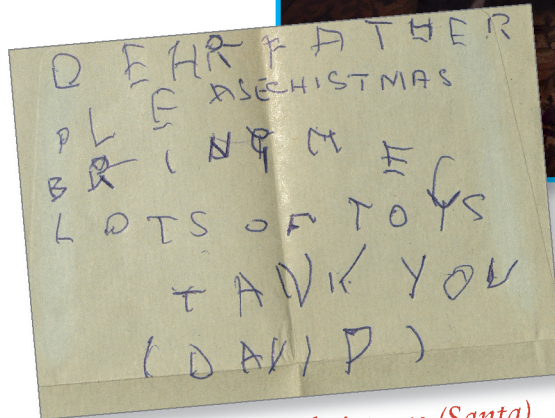 DEHR FATHER
PLEASECHISTMAS
BRING ME
LOTS OF TOYS
TANK YOU
(DAVID)
(Santa)